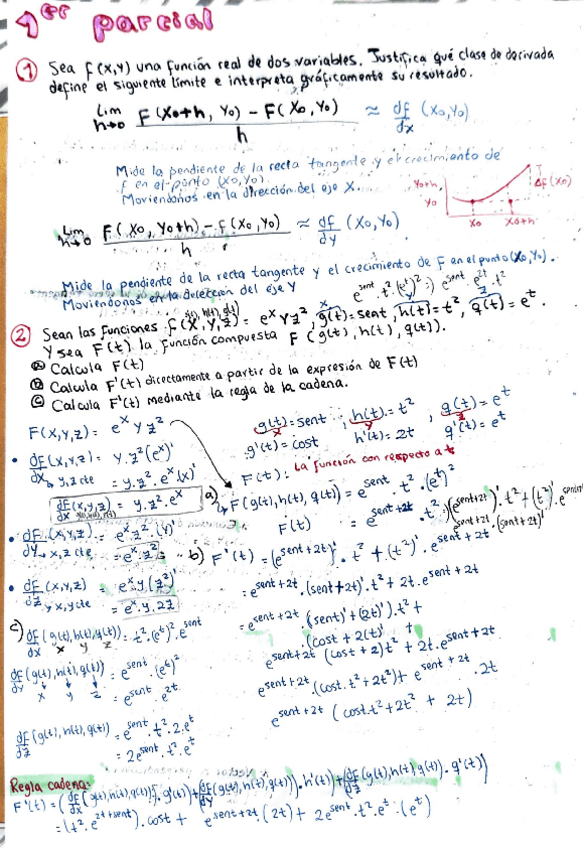 1er parcial
① Sea f(x,y) una función real de dos variables. Justifica qué clase de derivada
define el siguiente límite e interpreta gráficamente su resultado.
lim h→0 F(x₀+h, y₀) - F(x₀, y₀) / h ≈ df/dx (x₀,y₀)
Mide la pendiente de la recta tangente y el crecimiento de
f en el punto (x₀,y₀).
Moviendonos en la dirección del eje X.
y₀+h,
y₀
Δf(x₀)
x₀ x₀+h
lim h→0 F(x₀, y₀+h) - f(x₀,y₀) / h ≈ df/dy (x₀,y₀)
Mide la pendiente de la recta tangente y el crecimiento de F en el punto (x₀,y₀).
Moviendonos en la dirección del eje Y
e^sent · t² · (e^t)² → e^sent · e^2t · t²
② Sean las funciones f(x,y,z) = e^x y z², g(t)=sent, h(t)=t², q(t)=e^t.
Y sea F(t) la función compuesta F(g(t), h(t), q(t)).
ⓐ Calcula F(t)
ⓑ Calcula F'(t) directamente a partir de la expresión de F(t)
ⓒ Calcula F'(t) mediante la regla de la cadena.
F(x,y,z) = e^x y z²
g(t)=sent ; h(t)=t² ; q(t)=e^t
x y z
g'(t)=cost h'(t)=2t q'(t)=e^t
• df/dx (x,y,z) = y·z²(e^x)'
↳ y,z cte = y·z²·e^x·(x)'
df/dx (x,y,z) = y·z²·e^x
F(t): La función con respecto a t
a) F(g(t),h(t),q(t)) = e^sent · t² · (e^t)²
F(t) = e^sent+2t · t²
(e^sent+2t)' · t² + (t²)' · e^sent+2t
e^sent+2t · (sent+2t)'
• df/dy (x,y,z) = e^x·z²·(y)'
↳ x,z cte = e^x·z²
b) F'(t) = (e^sent+2t)' · t² + (t²)' · e^sent+2t
= e^sent+2t · (sent+2t)' · t² + 2t · e^sent+2t
= e^sent+2t · (sent)' + (2t)') · t² +
• df/dz (x,y,z) = e^x·y(z²)'
y x,y cte = e^x·y·2z
(cost + 2(t)' +
e^sent+2t (cost+2)t² + 2t·e^sent+2t
e^sent+2t · (cost·t²+2t²) + e^sent+2t · 2t
e^sent+2t (cost·t²+2t² + 2t)
c) df/dx (g(t),h(t),q(t)) = t²·(e^t)²·e^sent
x y z
df/dy (g(t),h(t),q(t)) = e^sent · (e^t)²
x y z = e^sent · e^2t
df/dz (g(t),h(t),q(t)) = e^sent · t² · 2·e^t
= 2e^sent · t² · e^t
Regla cadena:
F'(t) = (df/dx (g(t),h(t),q(t)) · g'(t)) + (df/dy (g(t),h(t),q(t)) · h'(t)) + (df/dz (g(t),h(t),q(t)) · q'(t))
= (t²·e^2t+sent) · cost + e^sent+2t (2t) + 2e^sent · t² · e^t · (e^t)